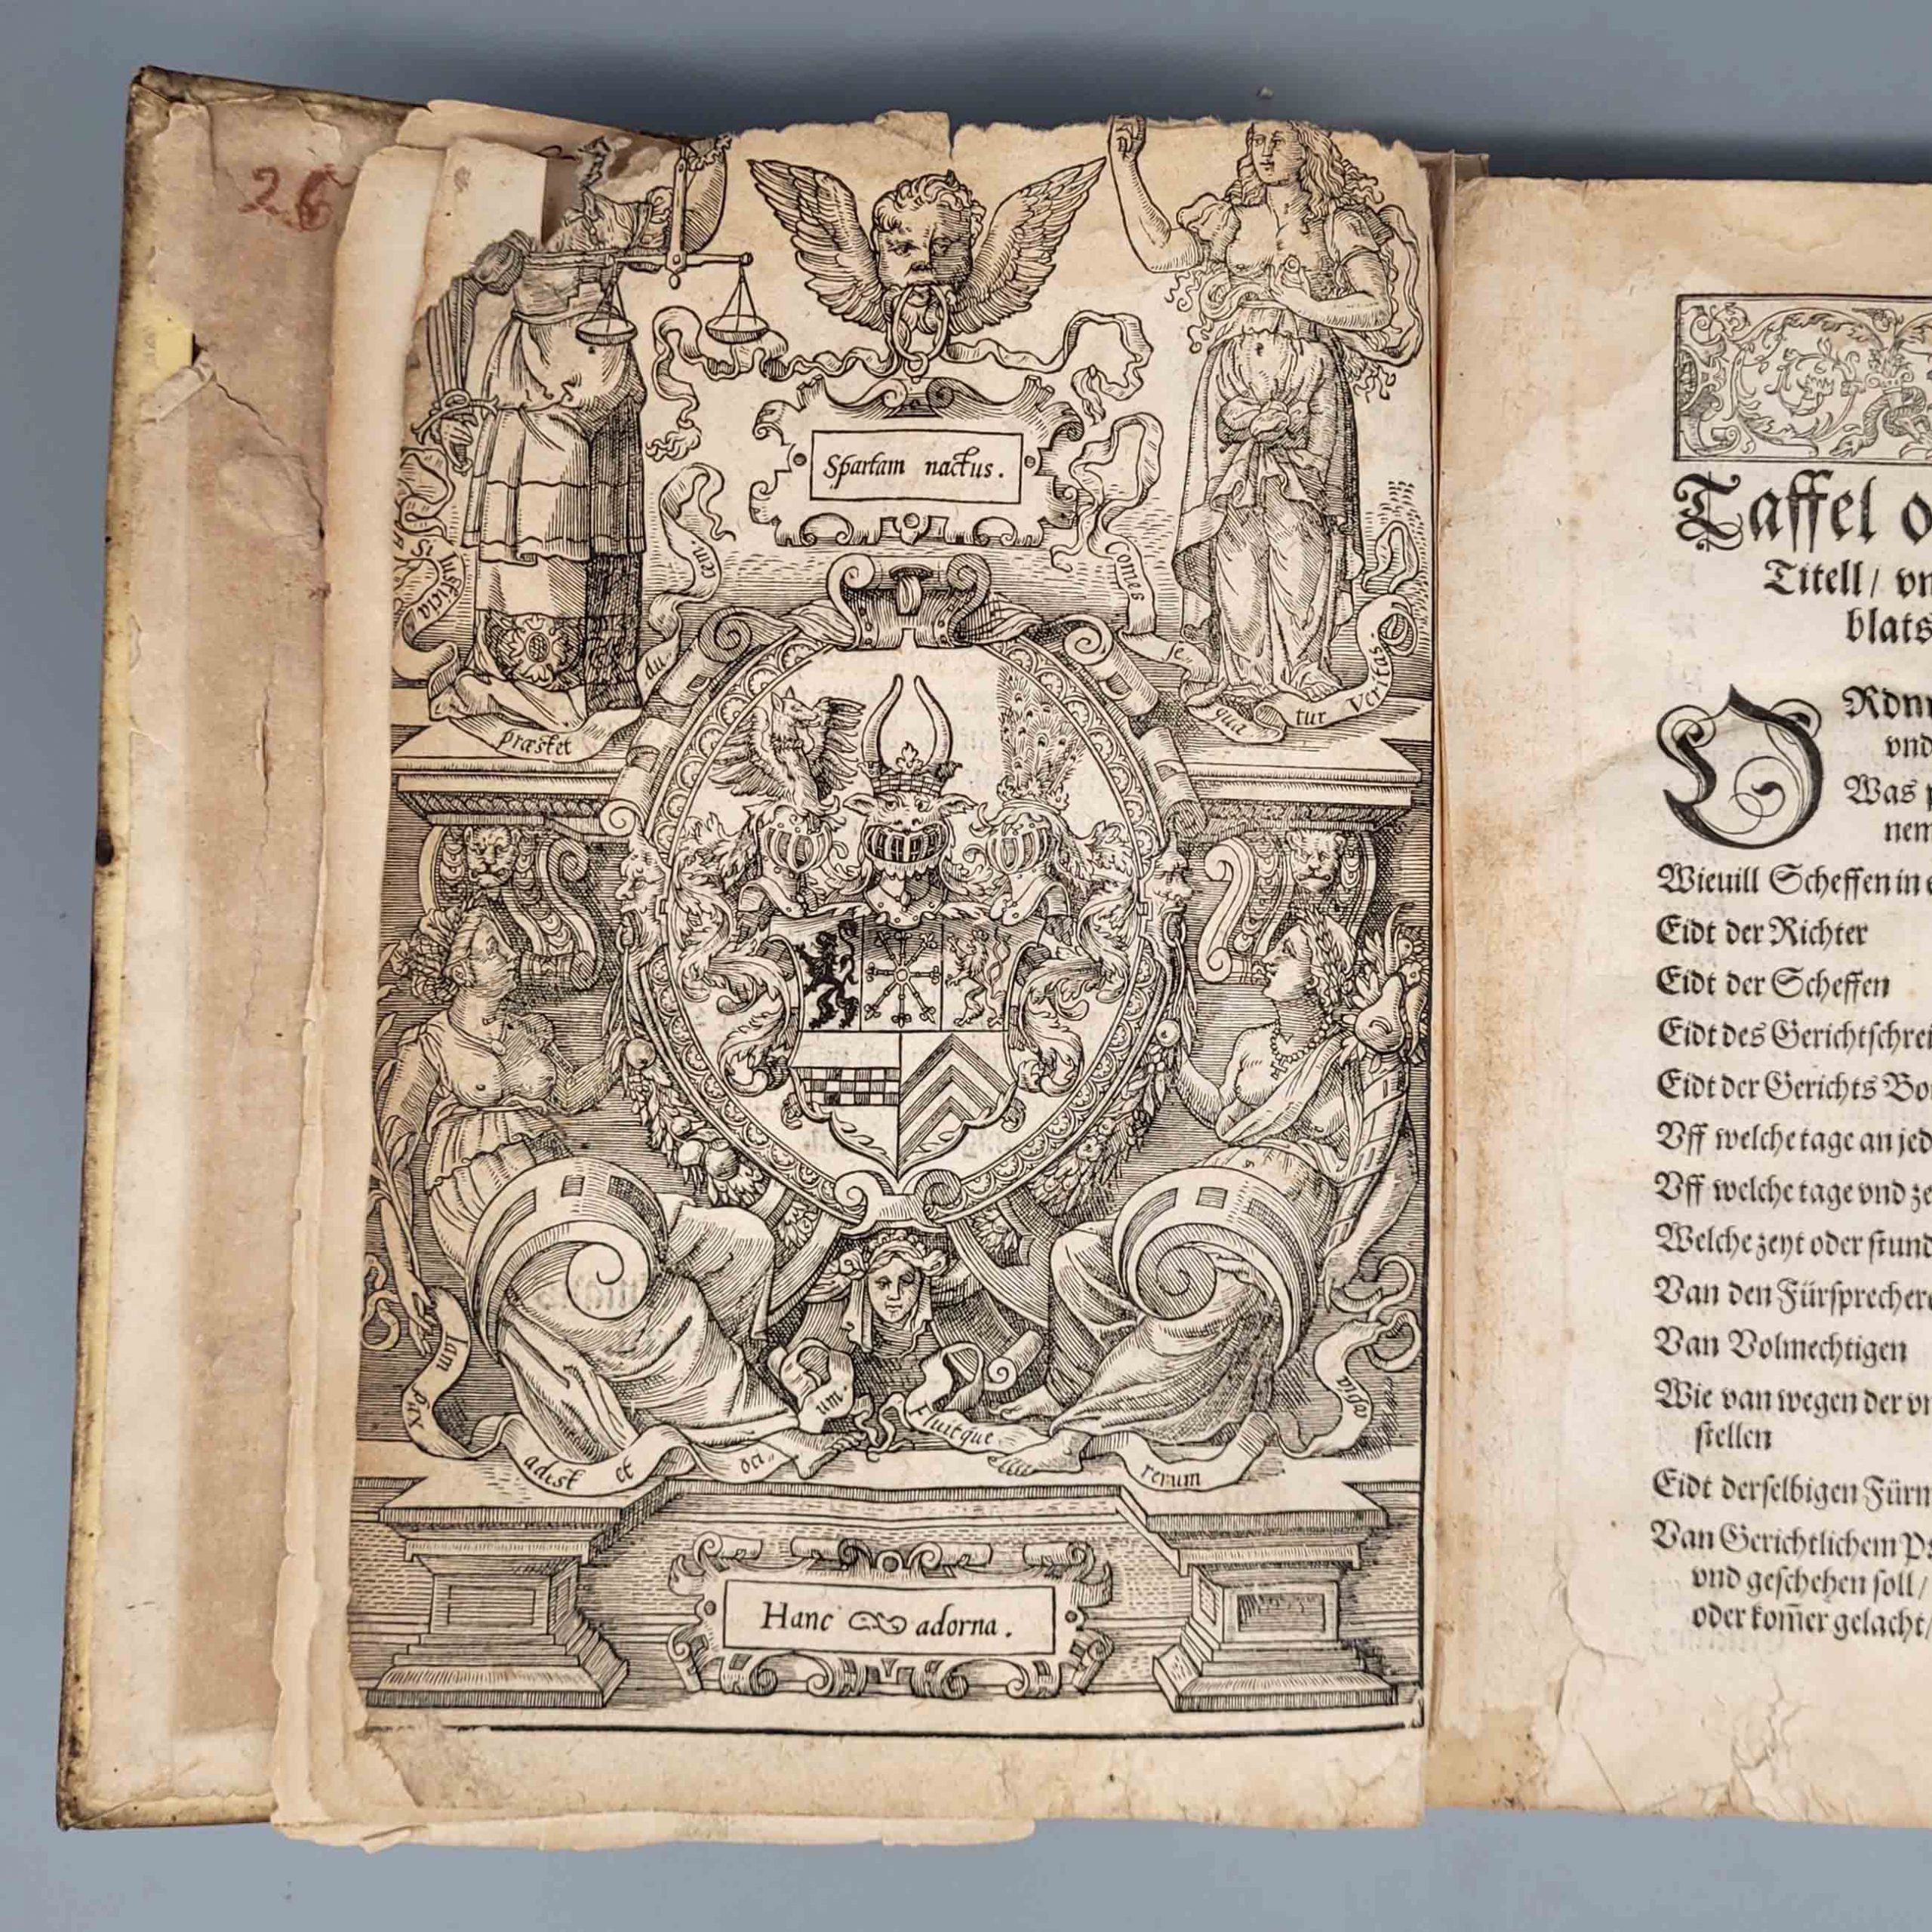 26
Spartam nactus.
Si
Iusticia
præstet
du
cem.
Comes
e
qua
tur Veritas.
Iam
pax
adest et oci
um.
Fluitque
rerum
copia
Hanc adorna.
Taffel
Titell / vn
blats
ORdn
vnd
Was
nem
Wieuill Scheffen in
Eidt der Richter
Eidt der Scheffen
Eidt des Gerichtschrei
Eidt der Gerichts Bo
Vff welche tage an jed
Vff welche tage vnd ze
Welche zeyt oder stund
Van den Fürsprecher
Van Volmechtigen
Wie van wegen der vn
stellen
Eidt derselbigen Fürn
Van Gerichtlichem P
vnd geschehen soll /
oder kom̃er gelacht /